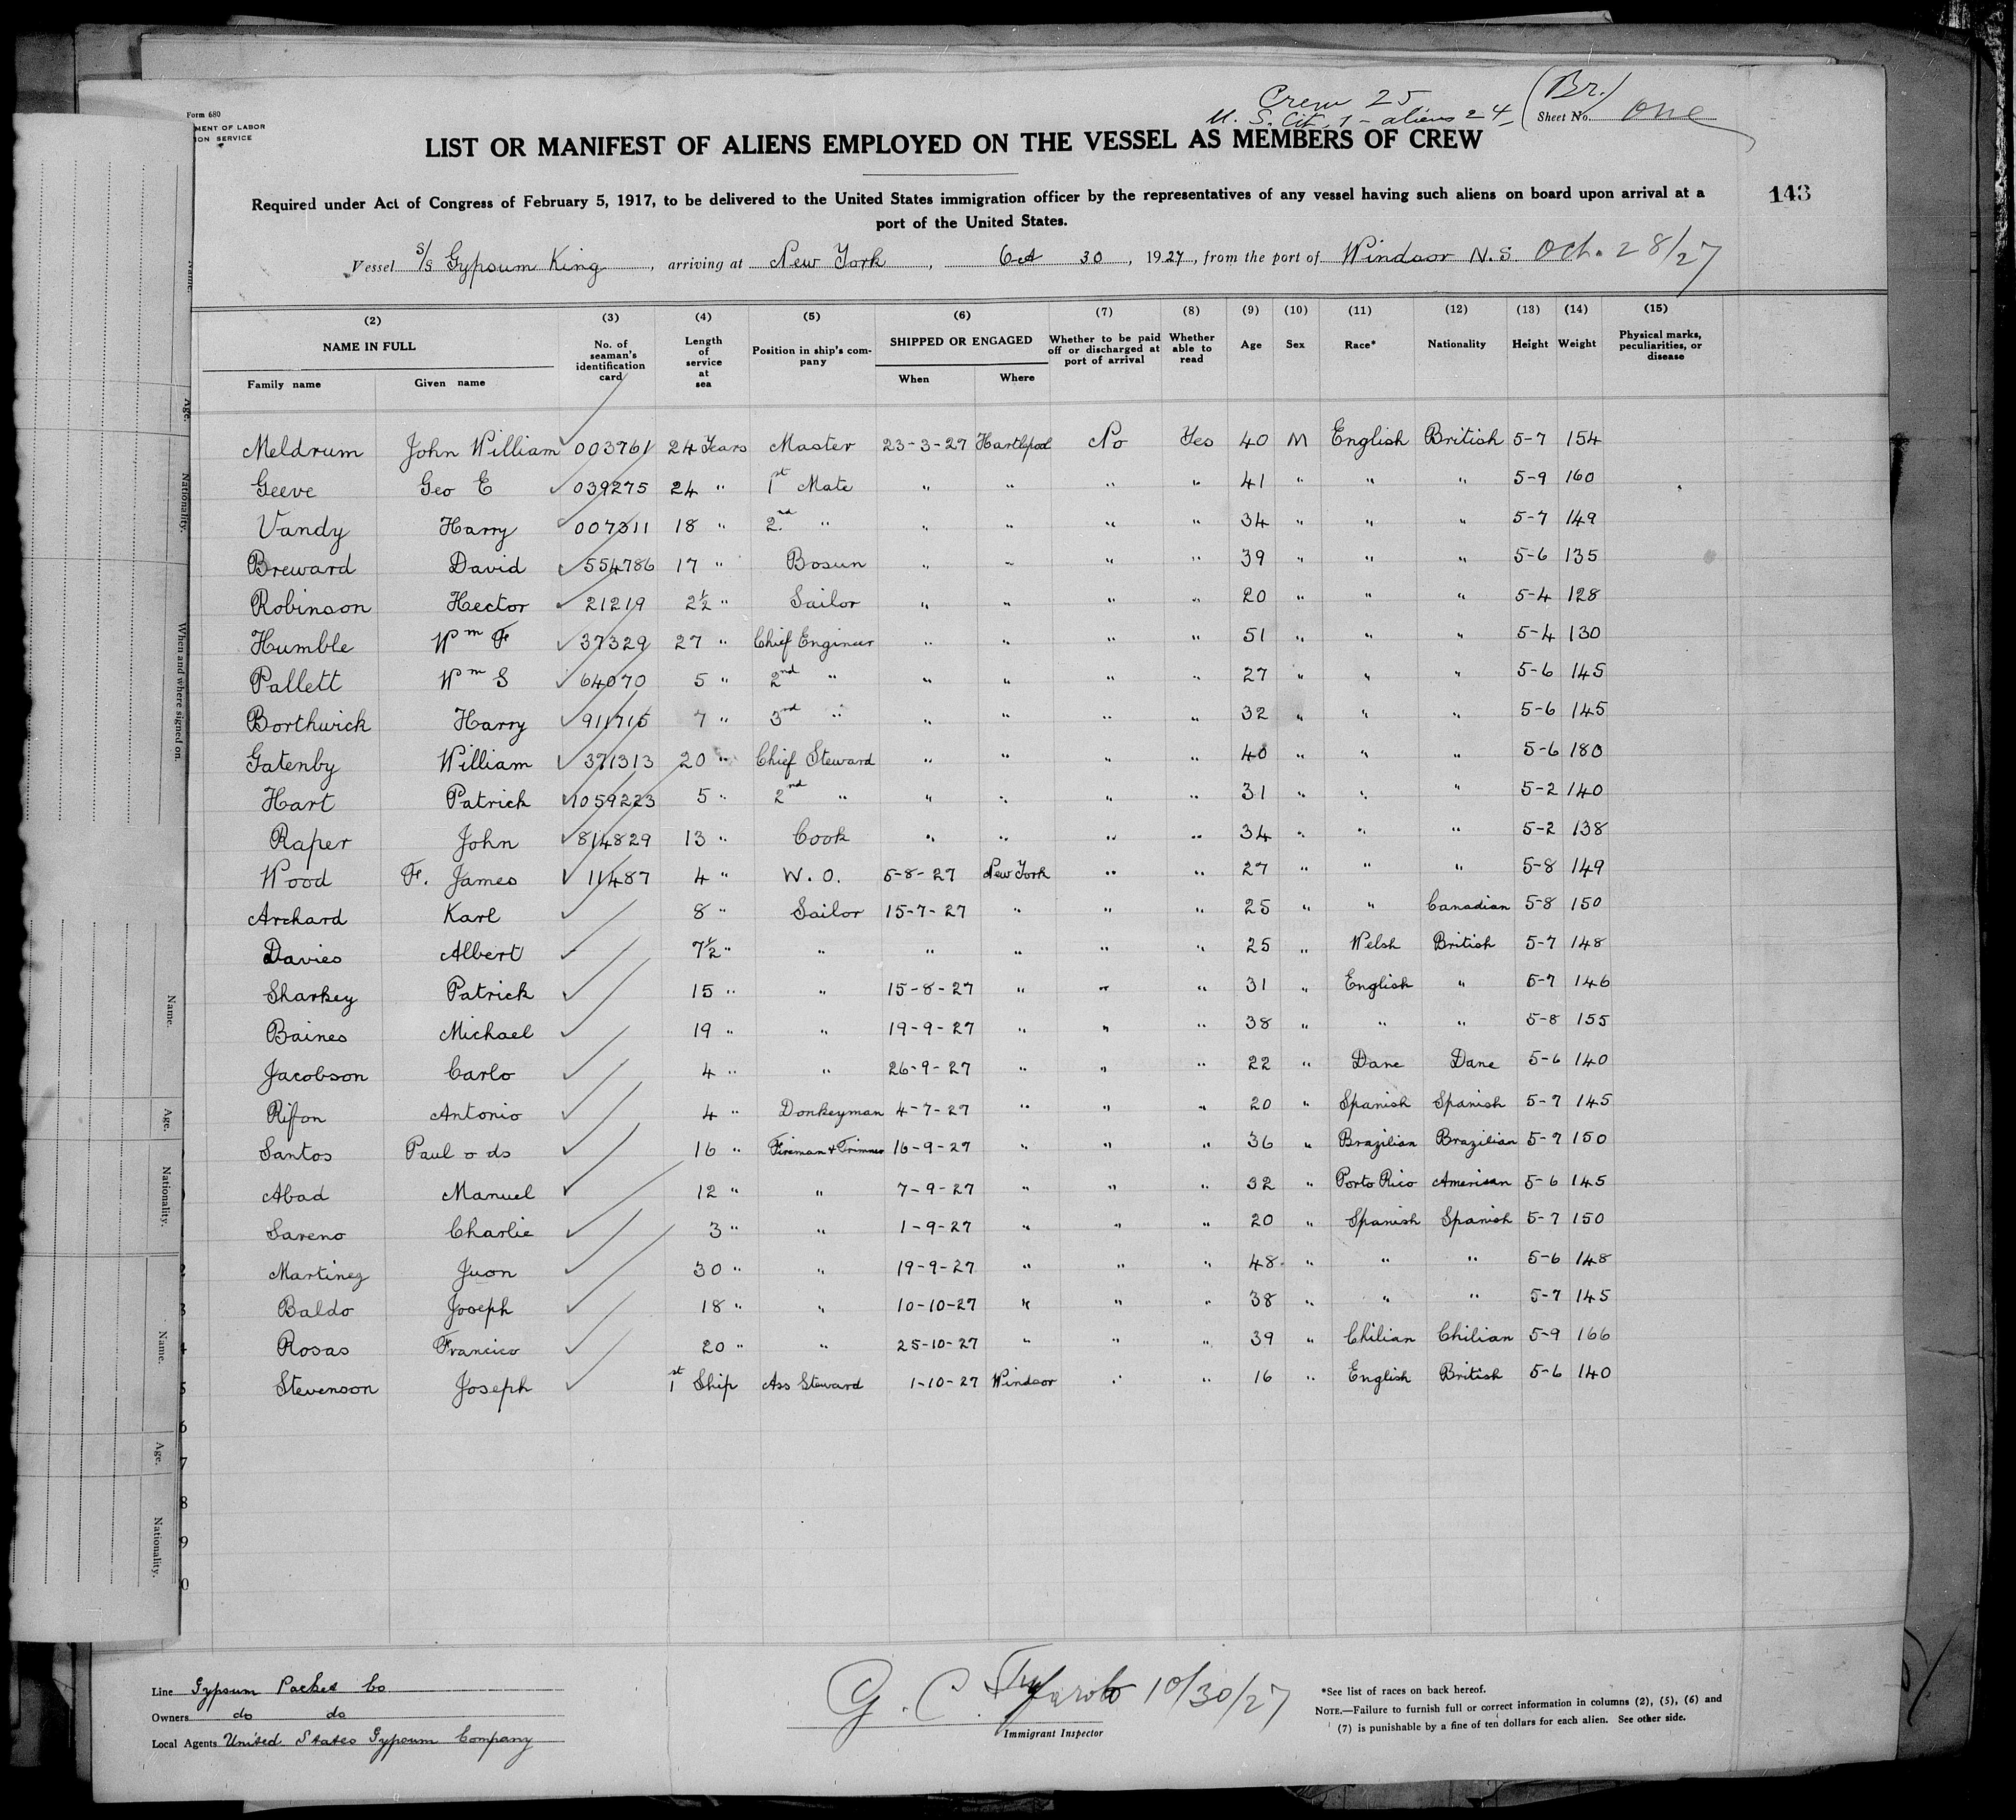 Form 680
MENT OF LABOR
ION SERVICE
Crew 25
U. S. Cit. 1 - aliens 24
(Br.)
Sheet No. One
LIST OR MANIFEST OF ALIENS EMPLOYED ON THE VESSEL AS MEMBERS OF CREW
Required under Act of Congress of February 5, 1917, to be delivered to the United States immigration officer by the representatives of any vessel having such aliens on board upon arrival at a
port of the United States.
143
Vessel S/S Gypsum King, arriving at New York, Oct 30, 1927, from the port of Windsor N.S. Oct. 28/27
(2) (3) (4) (5) (6) (7) (8) (9) (10) (11) (12) (13) (14) (15)
NAME IN FULL No. of seaman's identification card Length of service at sea Position in ship's company SHIPPED OR ENGAGED Whether to be paid off or discharged at port of arrival Whether able to read Age Sex Race* Nationality Height Weight Physical marks, peculiarities, or disease
Family name Given name When Where
Meldrum John William 003761 24 Years Master 23-3-27 Hartlepool No Yes 40 M English British 5-7 154
Geeve Geo E 039275 24 " 1st Mate " " " " 41 " " " 5-9 160
Vandy Harry 007311 18 " 2nd " " " " " 34 " " " 5-7 149
Breward David 554786 17 " Bosun " " " " 39 " " " 5-6 135
Robinson Hector 21219 2½ " Sailor " " " " 20 " " " 5-4 128
Humble Wm F 37329 27 " Chief Engineer " " " " 51 " " " 5-4 130
Pallett Wm S 64070 5 " 2nd " " " " " 27 " " " 5-6 145
Borthwick Harry 911715 7 " 3rd " " " " " 32 " " " 5-6 145
Gatenby William 371313 20 " Chief Steward " " " " 40 " " " 5-6 180
Hart Patrick 1059223 5 " 2nd " " " " " 31 " " " 5-2 140
Raper John 814829 13 " Cook " " " " 34 " " " 5-2 138
Wood F. James 11487 4 " W. O. 5-8-27 New York " " 27 " " " 5-8 149
Archard Karl 8 " Sailor 15-7-27 " " " 25 " " Canadian 5-8 150
Davies Albert 7½ " " " " " " 25 " Welsh British 5-7 148
Sharkey Patrick 15 " " 15-8-27 " " " 31 " English " 5-7 146
Baines Michael 19 " " 19-9-27 " " " 38 " " " 5-8 155
Jacobson Carlo 4 " " 26-9-27 " " " 22 " Dane Dane 5-6 140
Rifon Antonio 4 " Donkeyman 4-7-27 " " " 20 " Spanish Spanish 5-7 145
Santos Paul o ds 16 " Fireman & Trimmer 16-9-27 " " " 36 " Brazilian Brazilian 5-7 150
Abad Manuel 12 " " 7-9-27 " " " 32 " Porto Rico American 5-6 145
Sareno Charlie 3 " " 1-9-27 " " " 20 " Spanish Spanish 5-7 150
Martinez Juon 30 " " 19-9-27 " " " 48 " " " 5-6 148
Baldo Joseph 18 " " 10-10-27 " " " 38 " " " 5-7 145
Rosas Francico 20 " " 25-10-27 " " " 39 " Chilian Chilian 5-9 166
Stevenson Joseph 1st Ship Ass Steward 1-10-27 Windsor " " 16 " English British 5-6 140
6
7
8
9
0
Age.
Nationality.
When and where signed on.
Name.
Age.
Nationality.
Name.
Age.
Nationality.
Line Gypsum Packet Co
Owners do do
Local Agents United States Gypsum Company
G. C. 10/30/27
Immigrant Inspector
*See list of races on back hereof.
NOTE.—Failure to furnish full or correct information in columns (2), (5), (6) and
(7) is punishable by a fine of ten dollars for each alien. See other side.